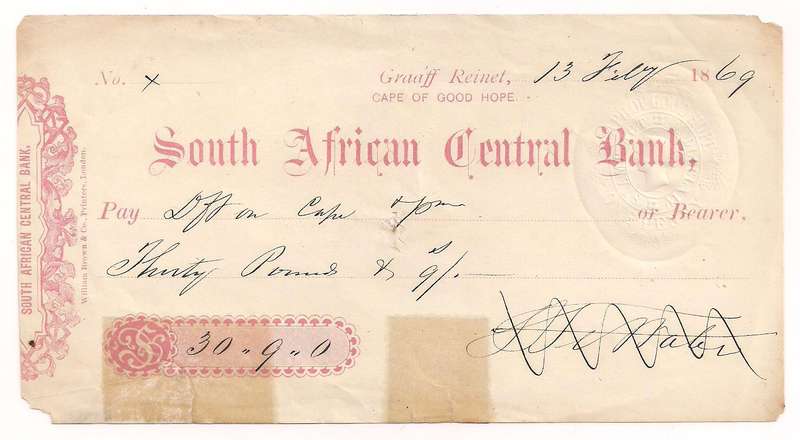 No. x Graaff Reinet, 13 Feby 1869
CAPE OF GOOD HOPE.
South African Central Bank,
Pay Dft on Cape or Bearer,
Thirty Pounds & 9/-
30 " 9 " 0
SOUTH AFRICAN CENTRAL BANK.
William Brown & Co., Printers, London.